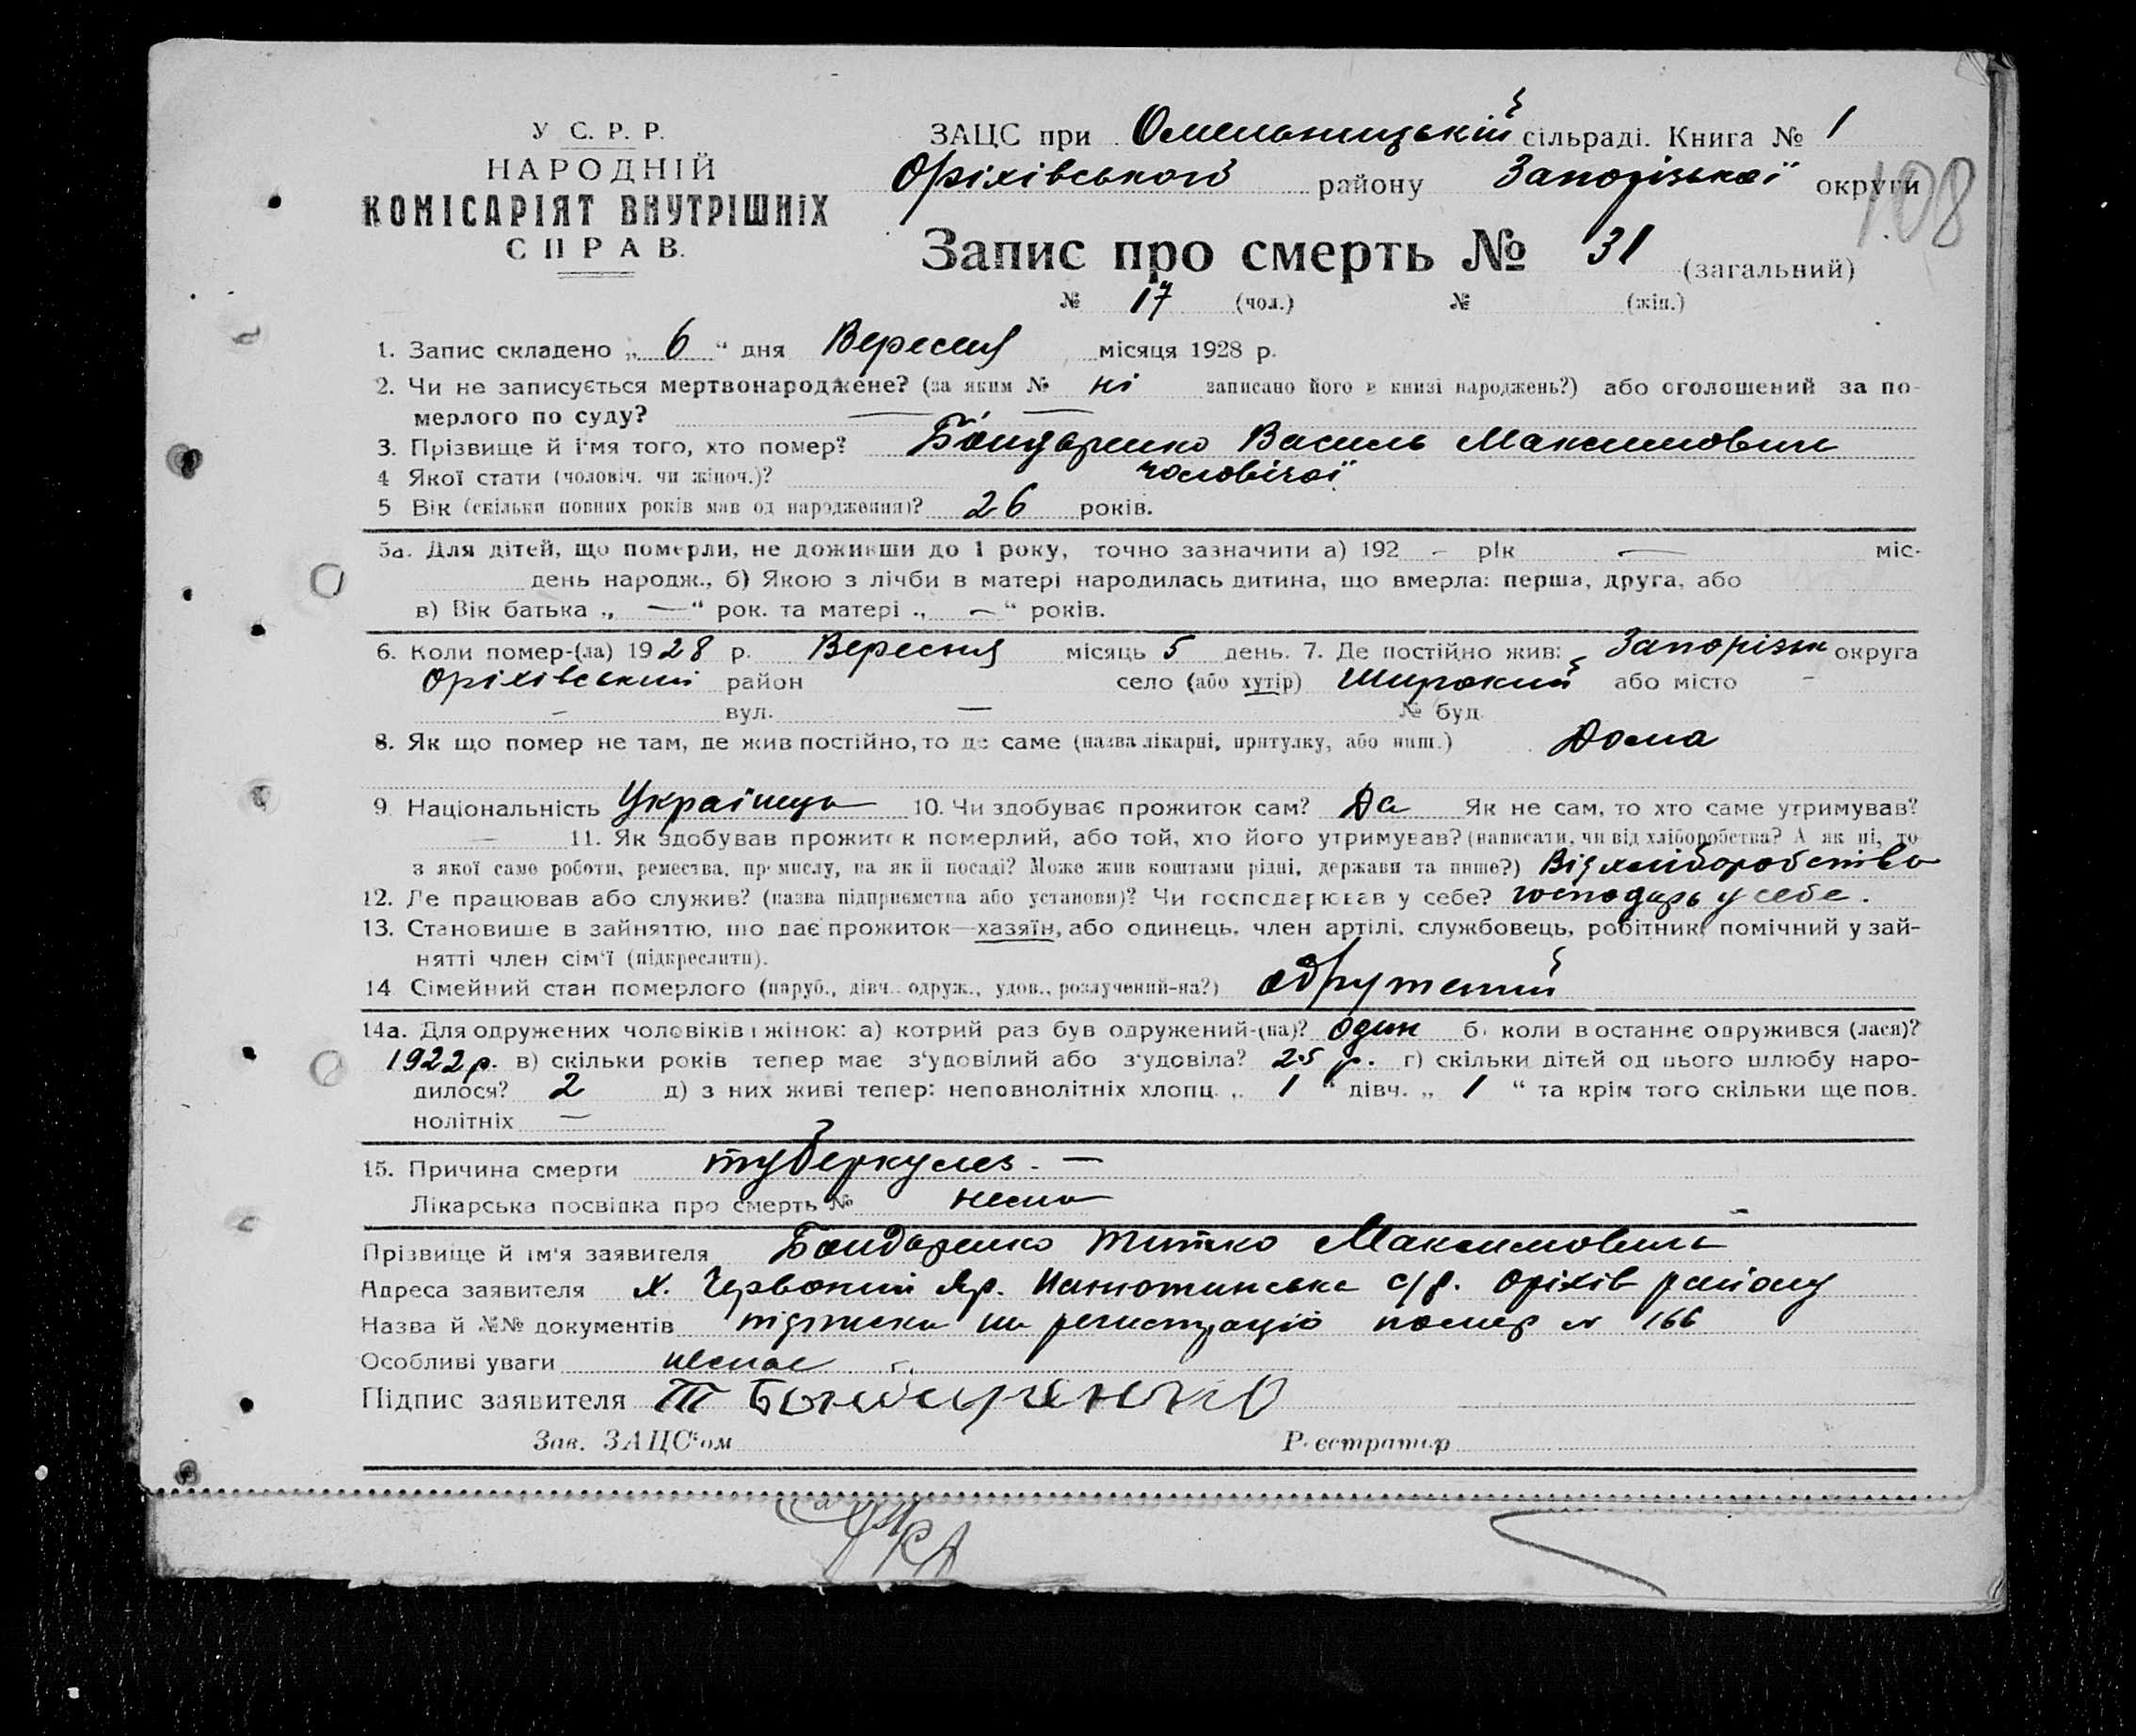 У С. Р. Р.
НАРОДНІЙ
КОМІСАРІЯТ ВНУТРІШНІХ
СПРАВ.
ЗАЦС при Омельницькій сільраді. Книга № 1
Оріхівського району Запорізької округи
108
Запис про смерть № 31 (загальний)
№ 17 (чол.) № (жін.)
1. Запис складено „ 6 “ дня Вересня місяця 1928 р.
2. Чи не записується мертвонароджене? (за яким № ні записано його в книзі народжень?) або оголошений за по-
мерлого по суду? —
3. Прізвище й ім'я того, хто помер? Бондаренко Василь Максимович
4 Якої стати (чоловіч. чи жіноч.)? чоловічої
5 Вік (скільки повних років мав од народження)? 26 років.
5а. Для дітей, що померли, не доживши до 1 року, точно зазначити а) 192 - рік — міс.
день народж., б) Якою з лічби в матері народилась дитина, що вмерла: перша, друга, або
в) Вік батька „ — “ рок. та матері „ — “ років.
6. Коли помер-(ла) 1928 р. Вересня місяць 5 день. 7. Де постійно жив: Запорізьк округа
Оріхівський район село (або хутір) Широкий або місто -
- вул. — № буд.
8. Як що помер не там, де жив постійно, то де саме (назва лікарні, притулку, або инш.) Дома
9. Національність Українець 10. Чи здобуває прожиток сам? Да Як не сам, то хто саме утримував?
— 11. Як здобував прожиток померлий, або той, хто його утримував? (написати, чи від хліборобства? А як ні, то
з якої саме роботи, ремества, промислу, на якій посаді? Може жив коштами рідні, держави та инше?) Від хліборобства
12. Де працював або служив? (назва підприємства або установи)? Чи господарював у себе? господарь у себе.
13. Становище в зайняттю, що дає прожиток—хазяїн, або одинець, член артілі, службовець, робітник, помічний у зай-
нятті член сім'ї (підкреслити).
14 Сімейний стан померлого (паруб., дівч. одруж., удов., розлучений-на?) одружений
14а. Для одружених чоловіків і жінок: а) котрий раз був одружений-(на)? один б) коли востаннє одружився (лася)?
1922 р. в) скільки років тепер має з'удовілий або з'удовіла? 25 р. г) скільки дітей од цього шлюбу наро-
дилося? 2 д) з них живі тепер: неповнолітніх хлопц. „ 1 “ дівч. „ 1 “ та крім того скільки ще пов.
нолітніх —
15. Причина смерти туберкулез. —
Лікарська посвідка про смерть № нема
Прізвище й ім'я заявителя Бондаренко Титко Максимович
Адреса заявителя х. Червоний Яр. с/р. Оріхів району
Назва й №№ документів підписка на регистрацію номер № 166
Особливі уваги немає
Підпис заявителя Т Бондаренко
Зав. ЗАЦС'ом Реєстратор